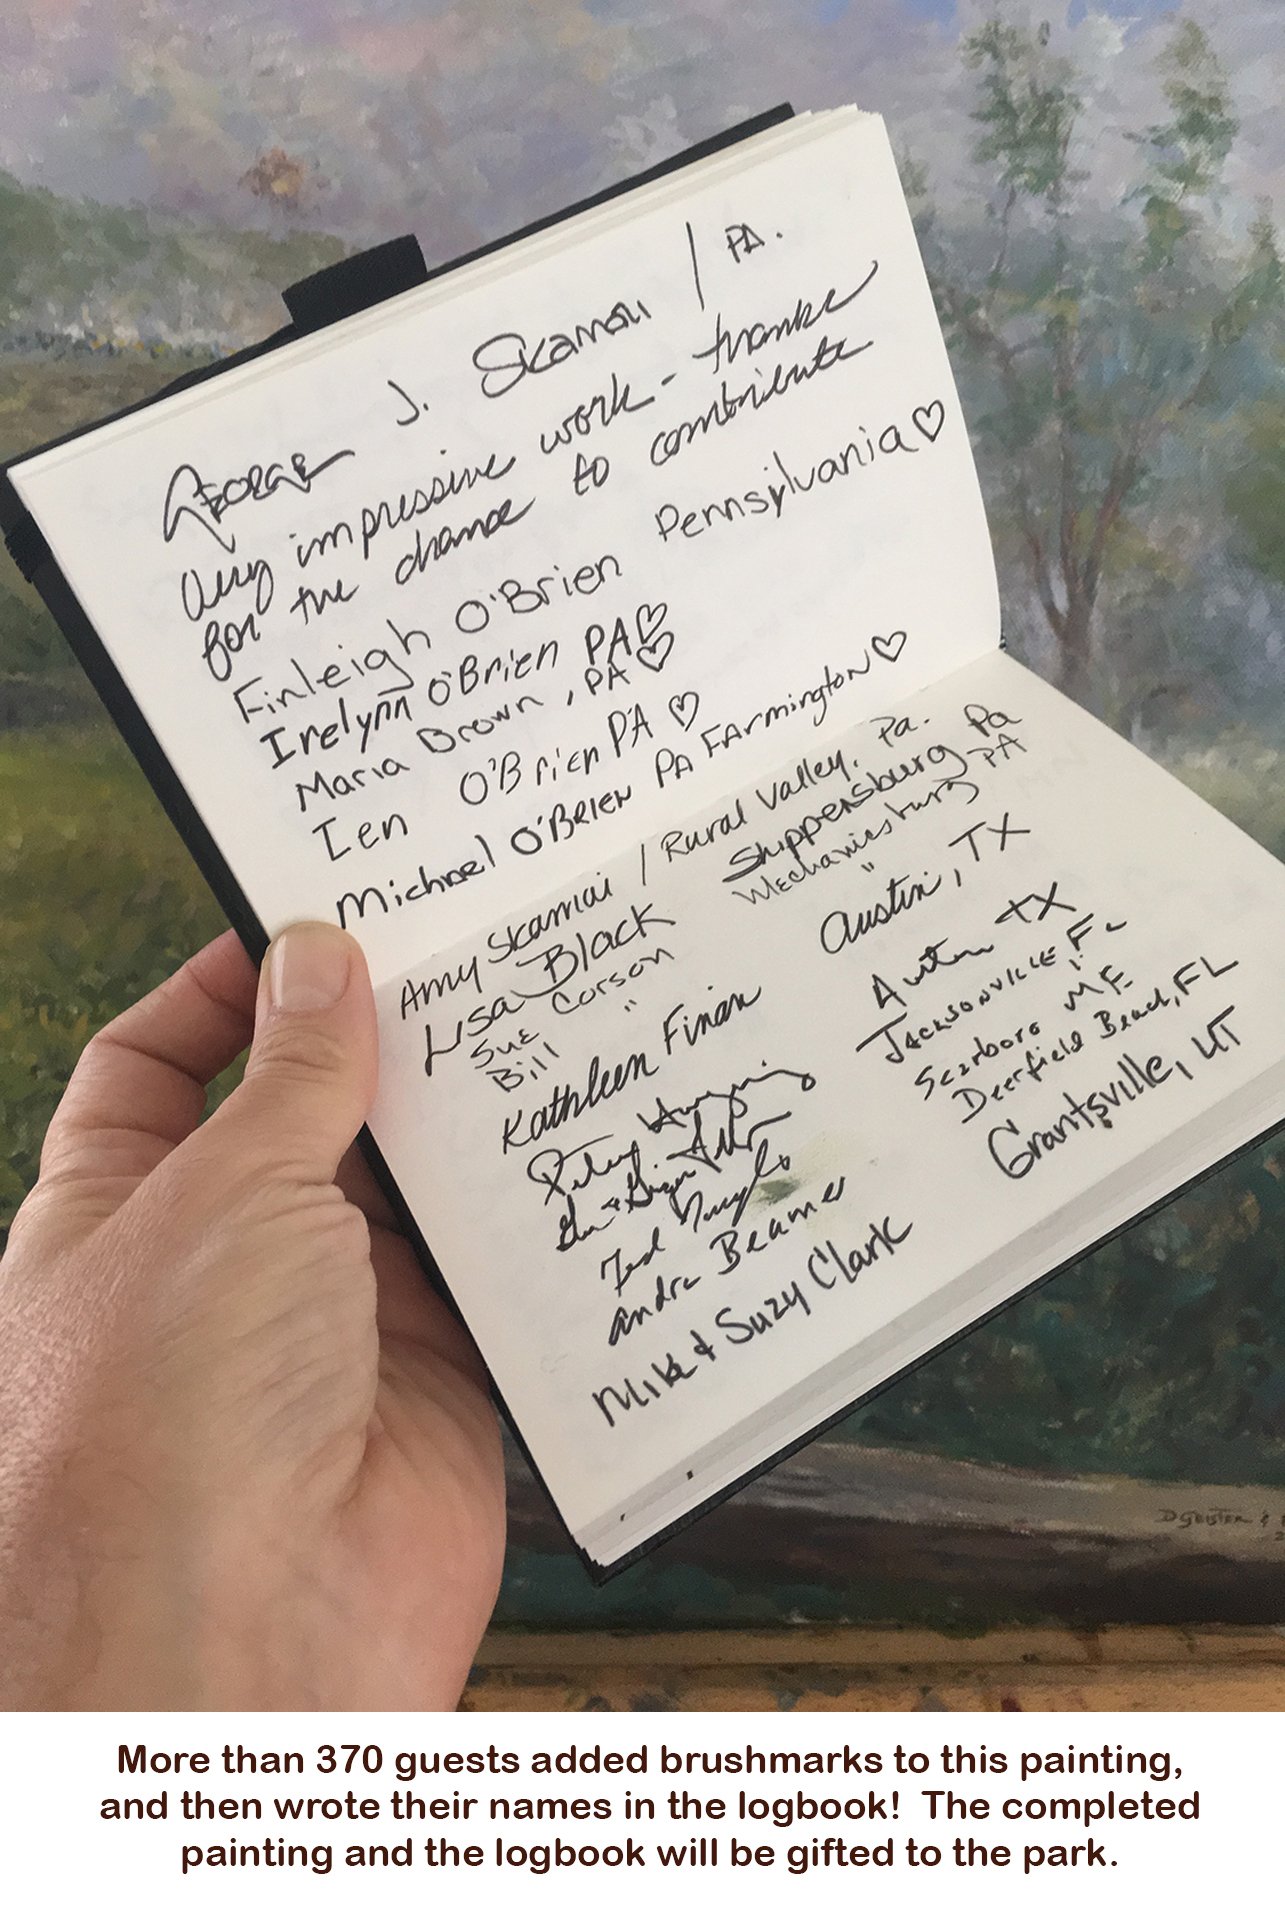 GEORGE J. SKAMAI / PA.
Very impressive work - thanks
for the chance to contribute
Finleigh O'Brien Pennsylvania ♡
Irelynn O'Brien PA ♡
Maria Brown, PA ♡
Ien O'Brien PA ♡
Michael O'BRIEN PA FArmington ♡
Amy Skamai / Rural Valley, Pa.
Lisa Black Shippensburg Pa
Sue Corson Mechanicsburg PA
Bill " "
Kathleen Finan Austin, TX
Austin TX
JACKSONVILLE FL
Scarboro ME
Ted Deerfield Beach, FL
Andra Beamer
Mike & Suzy Clark Grantsville, UT
D GEISTER &
More than 370 guests added brushmarks to this painting,
and then wrote their names in the logbook! The completed
painting and the logbook will be gifted to the park.